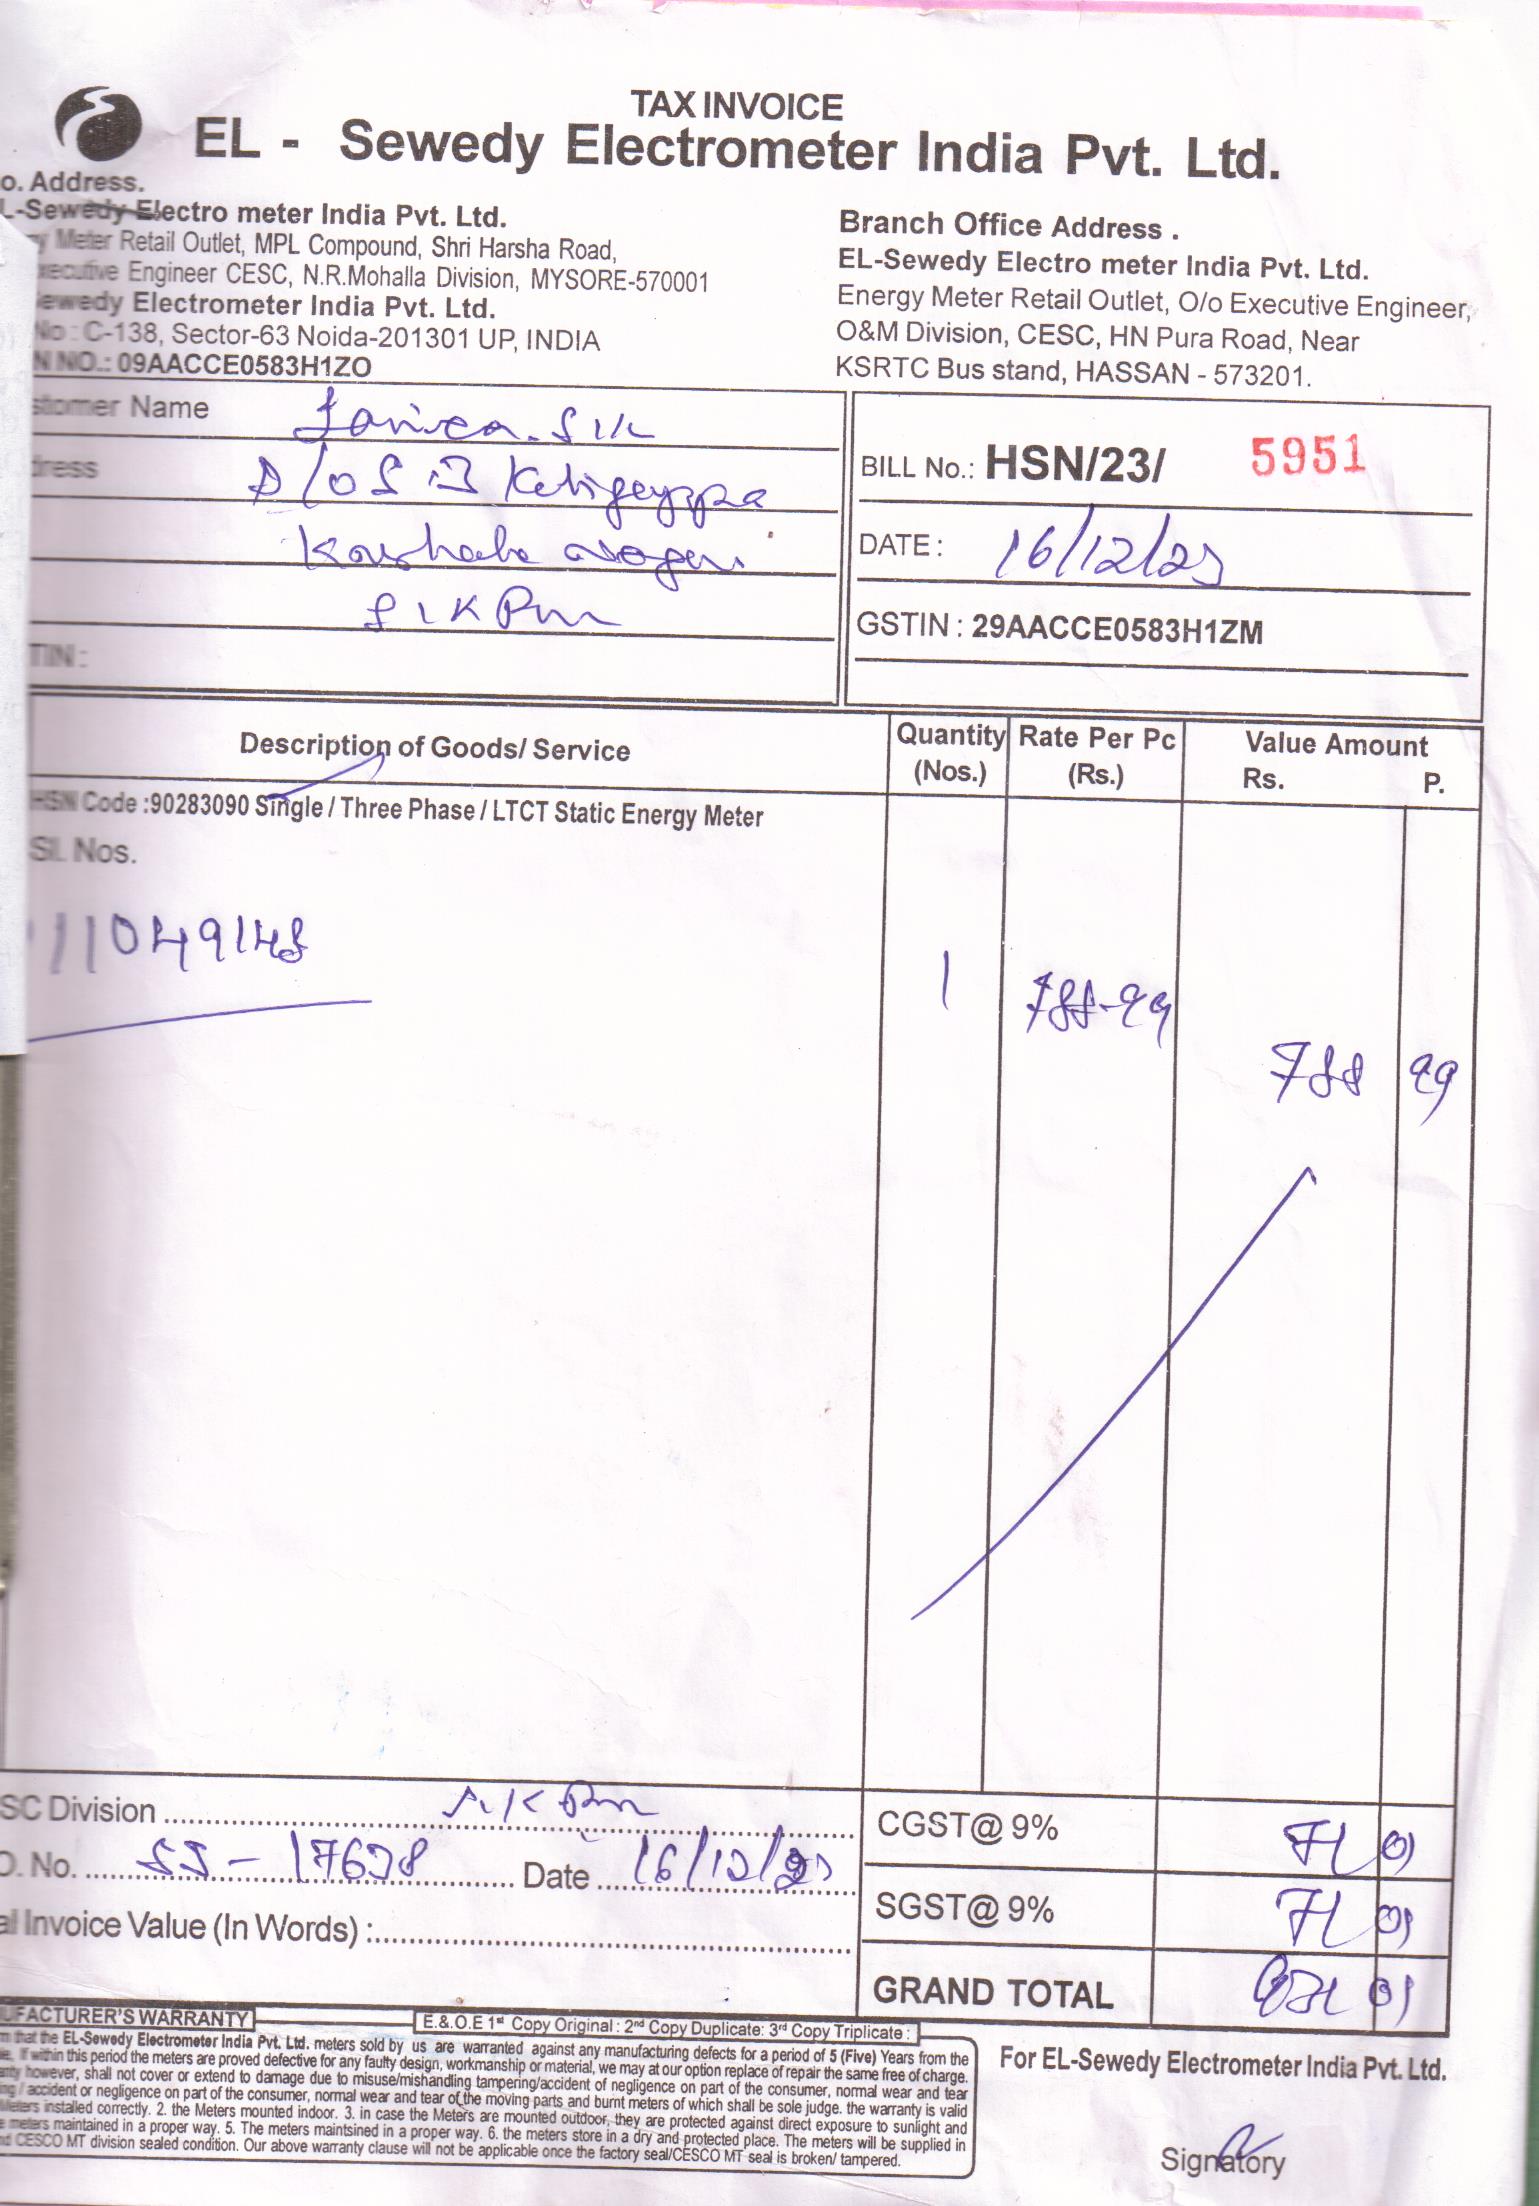 TAX INVOICE
EL - Sewedy Electrometer India Pvt. Ltd.
o. Address.
L-Sewedy Electro meter India Pvt. Ltd.
y Meter Retail Outlet, MPL Compound, Shri Harsha Road,
xecutive Engineer CESC, N.R.Mohalla Division, MYSORE-570001
ewedy Electrometer India Pvt. Ltd.
No : C-138, Sector-63 Noida-201301 UP, INDIA
N NO.: 09AACCE0583H1ZO
Branch Office Address .
EL-Sewedy Electro meter India Pvt. Ltd.
Energy Meter Retail Outlet, O/o Executive Engineer,
O&M Division, CESC, HN Pura Road, Near
KSRTC Bus stand, HASSAN - 573201.
stomer Name
dress D/O
TIN :
BILL No.: HSN/23/ 5951
DATE : 16/12/23
GSTIN : 29AACCE0583H1ZM
Description of Goods/ Service Quantity (Nos.) Rate Per Pc (Rs.) Value Amount Rs. P.
HSN Code :90283090 Single / Three Phase / LTCT Static Energy Meter
Sl. Nos.
11049148 1 788-99
788 99
SC Division S.K Pm
O. No. SS - 17638 Date 16/12/23
al Invoice Value (In Words) :
CGST@ 9% 71 01
SGST@ 9% 71 01
GRAND TOTAL 931 01
UFACTURER'S WARRANTY E.& O.E 1st Copy Original : 2nd Copy Duplicate: 3rd Copy Triplicate :
m that the EL-Sewedy Electrometer India Pvt. Ltd. meters sold by us are warranted against any manufacturing defects for a period of 5 (Five) Years from the
e. If within this period the meters are proved defective for any faulty design, workmanship or material, we may at our option replace of repair the same free of charge.
nty however, shall not cover or extend to damage due to misuse/mishandling tampering/accident of negligence on part of the consumer, normal wear and tear
ing / accident or negligence on part of the consumer, normal wear and tear of the moving parts and burnt meters of which shall be sole judge. the warranty is valid
Meters installed correctly. 2. the Meters mounted indoor. 3. in case the Meters are mounted outdoor, they are protected against direct exposure to sunlight and
e meters maintained in a proper way. 5. The meters maintsined in a proper way. 6. the meters store in a dry and protected place. The meters will be supplied in
nd CESCO MT division sealed condition. Our above warranty clause will not be applicable once the factory seal/CESCO MT seal is broken/ tampered.
For EL-Sewedy Electrometer India Pvt. Ltd.
Signatory